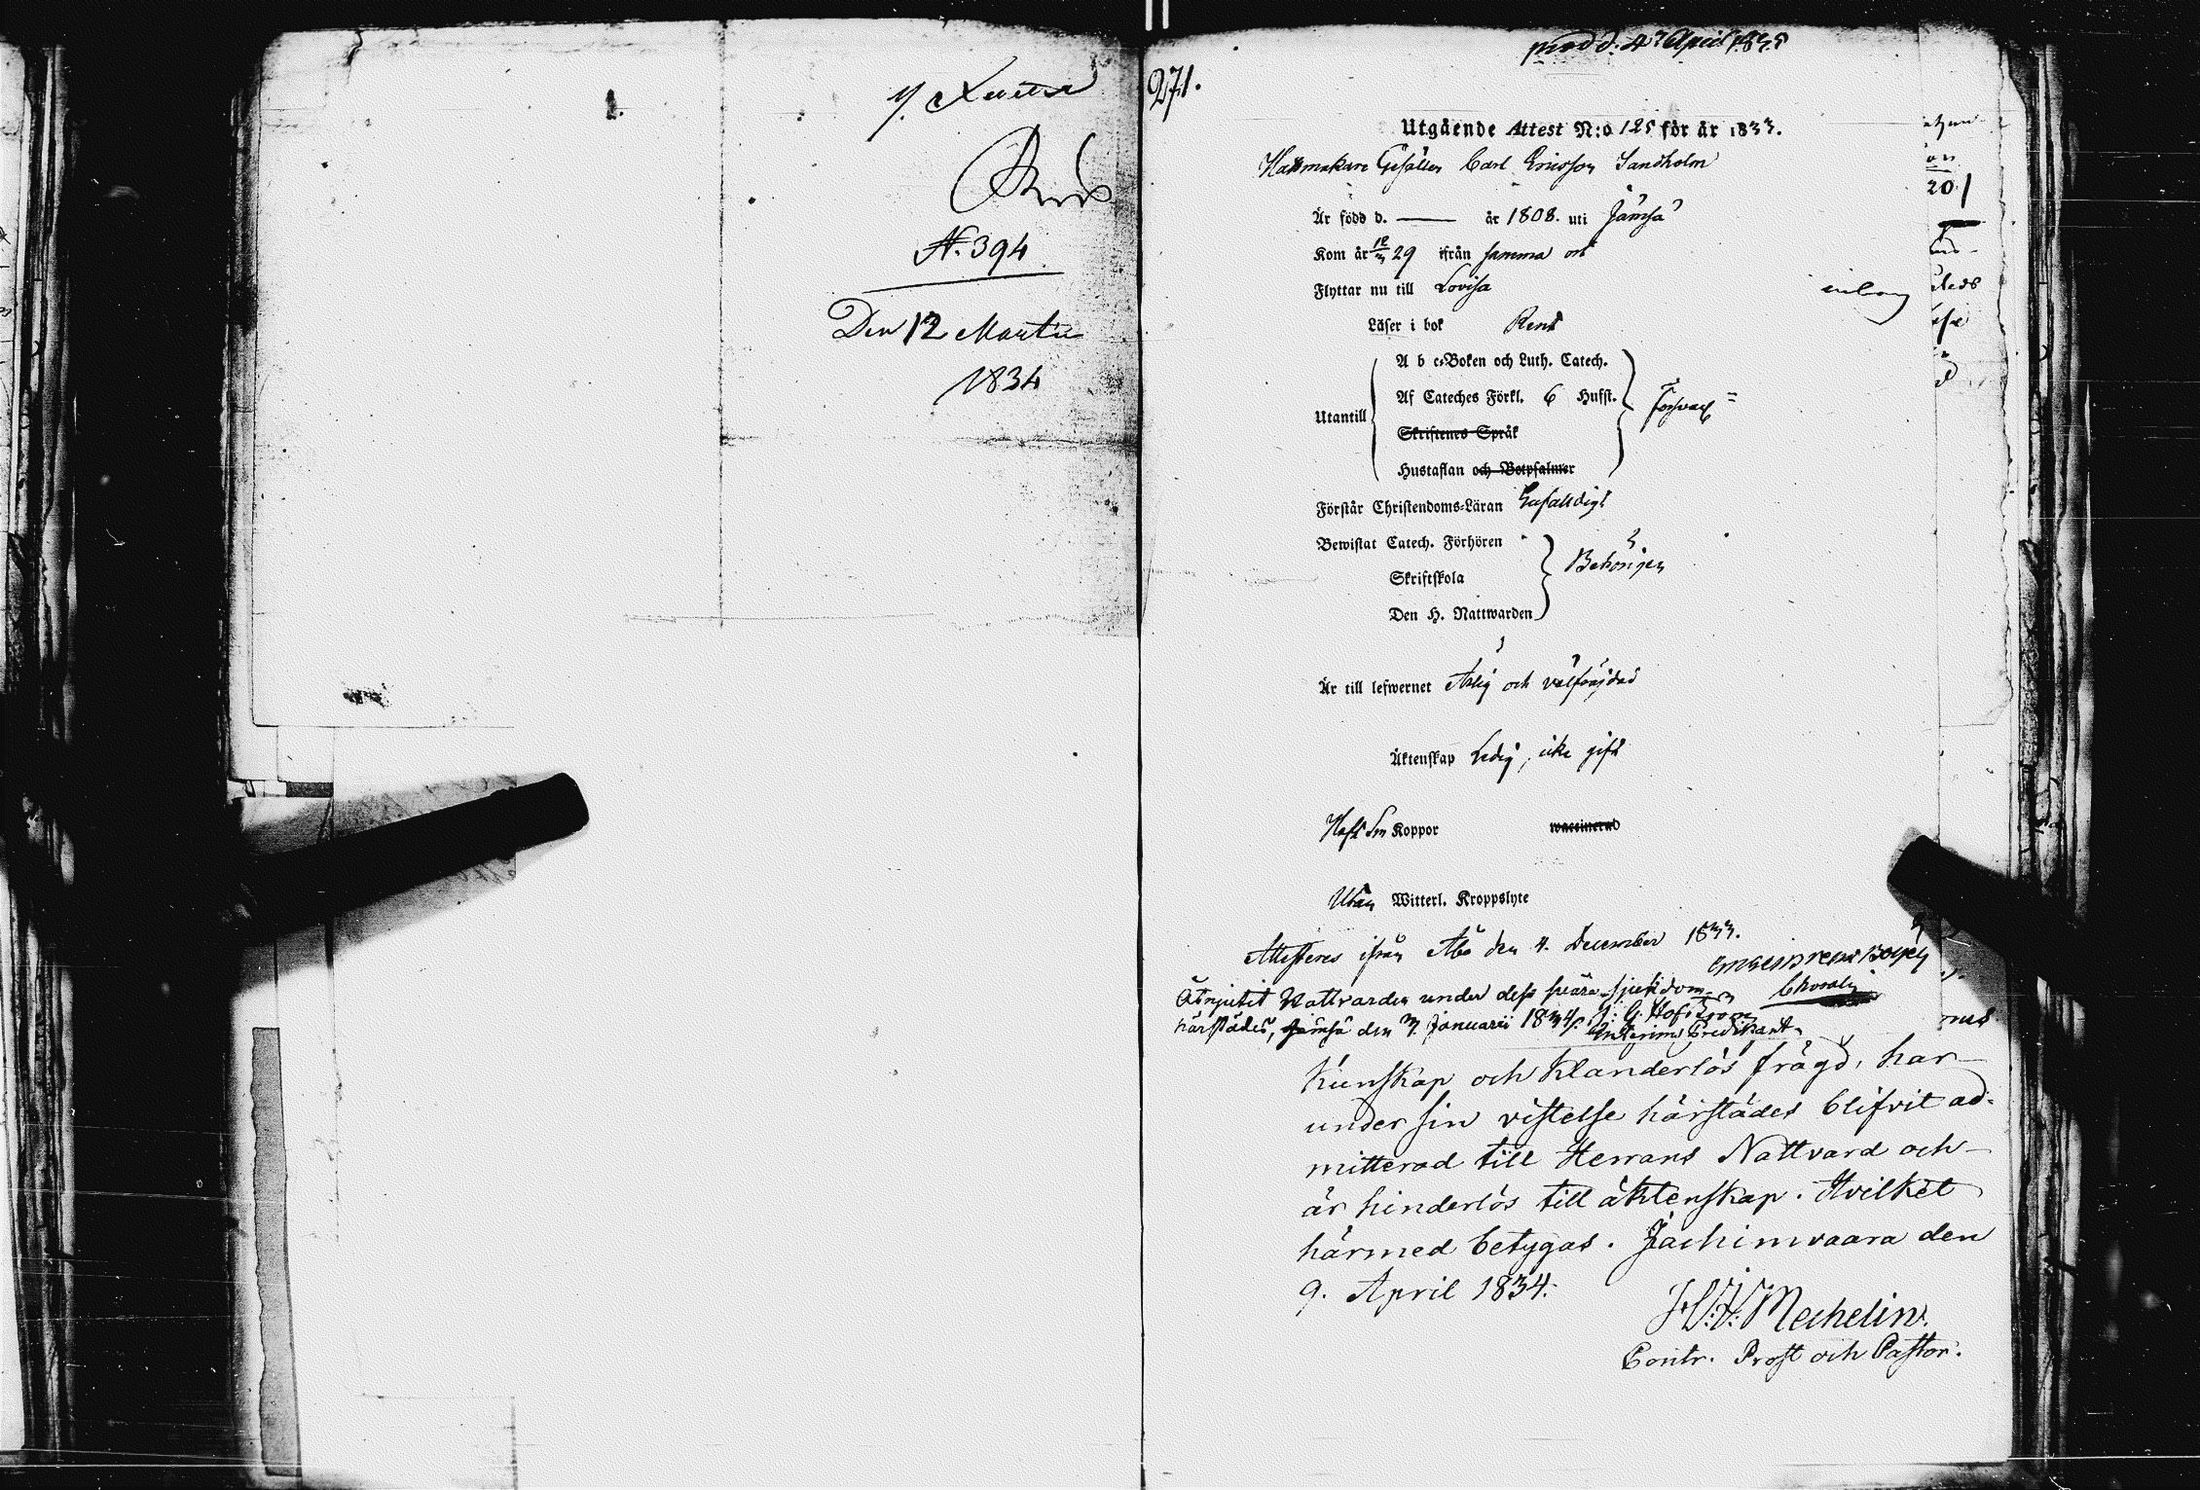 N. 394
Den 12 Martii
1834
271.
prod d. 4 April 1835
Utgående Attest N:o 125 för år 1833.
Hattmakare Gesällen Carl Ericsson Sandholm
Är född d. — år 1808. uti Jämsä
Kom år 29 ifrån samma ort
Flyttar nu till Lovisa
Läser i bok Rent
A b c-Boken och Luth. Catech.
Af Cateches Förkl. 6 Hufst.
Utantill Försvarl
Skriftenes Språk
Hustaflan och Botpsalmer
Förstår Christendoms-Läran Enfalldigt
Bewistat Catech. Förhören
Behörigen
Skriftskola
Den H. Nattwarden
Är till lefwernet Ärlig och välfräjdad
Äktenskap Ledig, icke gift
Haft Sm Koppor waccinerad
Utan Witterl. Kroppslyte
Attesteras ifrån Åbo den 4. December 1833.
Åtnjutit Nattvarden under dess svåra sjukdom
härstädes, Jämsä den 7 Januarii 1834.
Kunskap och klanderlös frägd, har
under sin vistelse härstädes blifvit ad-
mitterad till Herrans Nattvard och
är hinderlös till äktenskap. Hvilket
härmed betygas. Jachimvaara den
9. April 1834.
Mechelin.
Contr. Prost och Pastor.